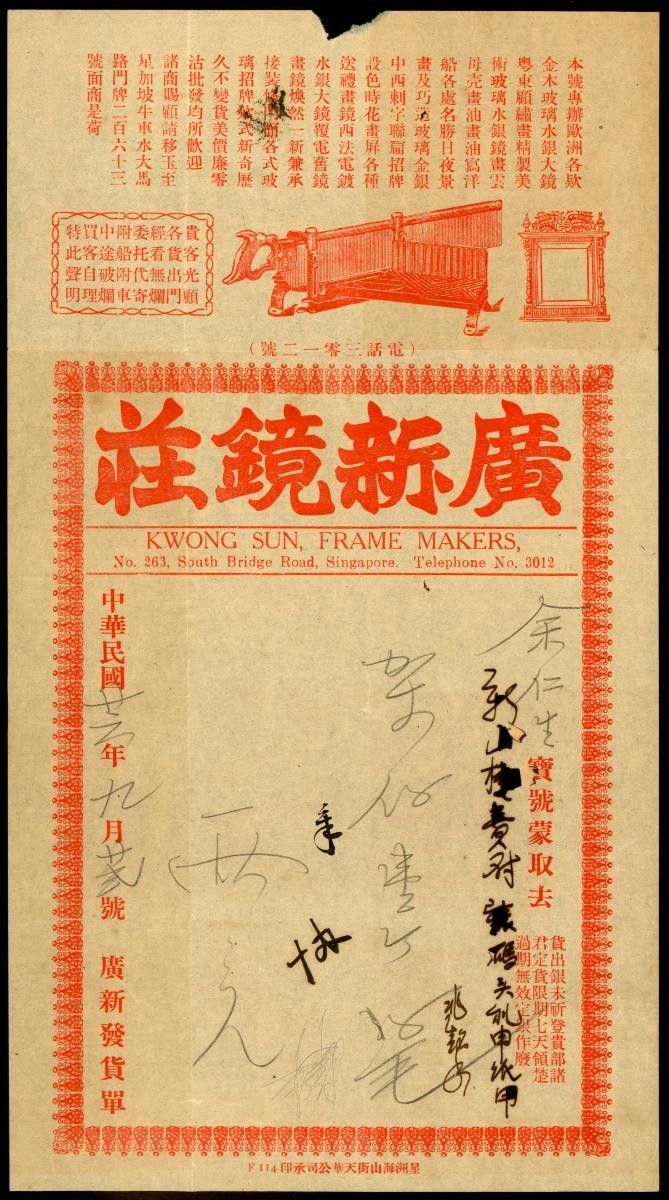 本號專辦歐洲各欵
金木玻璃水銀大鏡
粵東顧繡畫精製美
術玻璃水銀鏡畫雲
母壳畫油畫油寫洋
船各處名勝日夜景
畫及巧造玻璃金銀
中西刺字聯扁招牌
設色時花畫屏各種
送禮畫鏡西法電鍍
水銀大鏡覆電舊鏡
畫鏡煥然一新兼承
接裝修門面各式玻
璃招牌欵式新奇歷
久不變貨美價廉零
沽批發均所歡迎
諸商賜顧請移玉至
星加坡牛車水大馬
路門牌二百六十三
號面商是荷
貴客光顧
各貨出門
經看無爛
委托代寄
附船附車
中途破爛
買客自理
特此聲明
（電話三零一二號）
廣新鏡莊
KWONG SUN, FRAME MAKERS,
No. 263, South Bridge Road, Singapore. Telephone No. 3012
余仁生寶號蒙取去
貨出銀未祈登貴部諸
君定貨限期七天領楚
過期無效定銀作廢
兩元
中華民國 年九月 號 廣新發貨單
星洲海山街天華公司承印 F 114